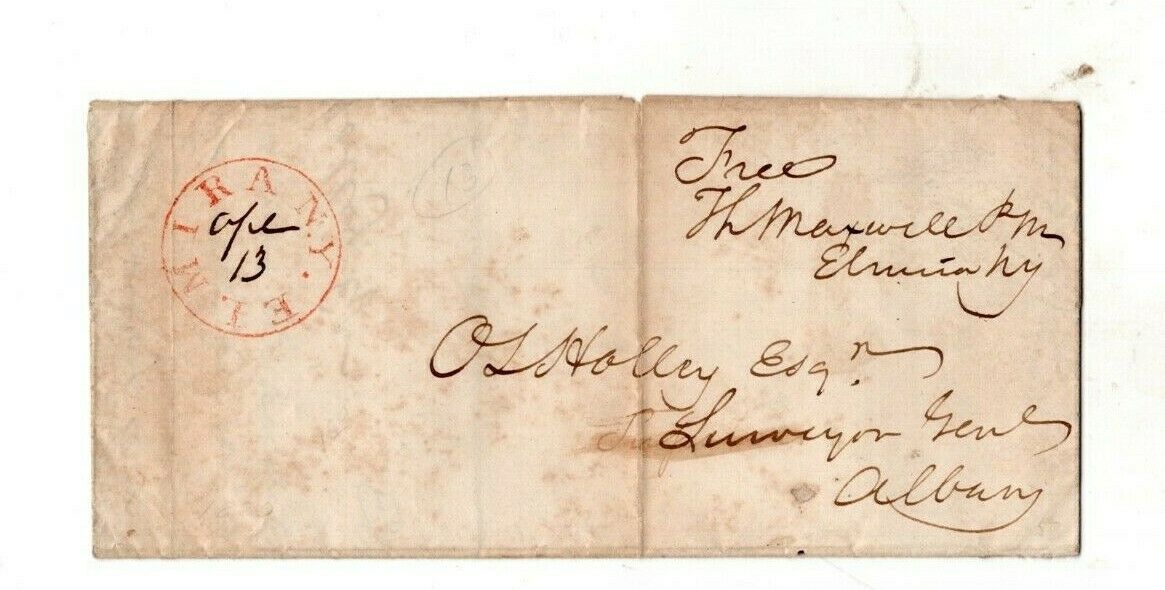 ELMIRA N.Y.
Apl
13
Free
Th Maxwell P M
Elmira Ny
O L Holley Esqr.
Surveyor Genl
Albany